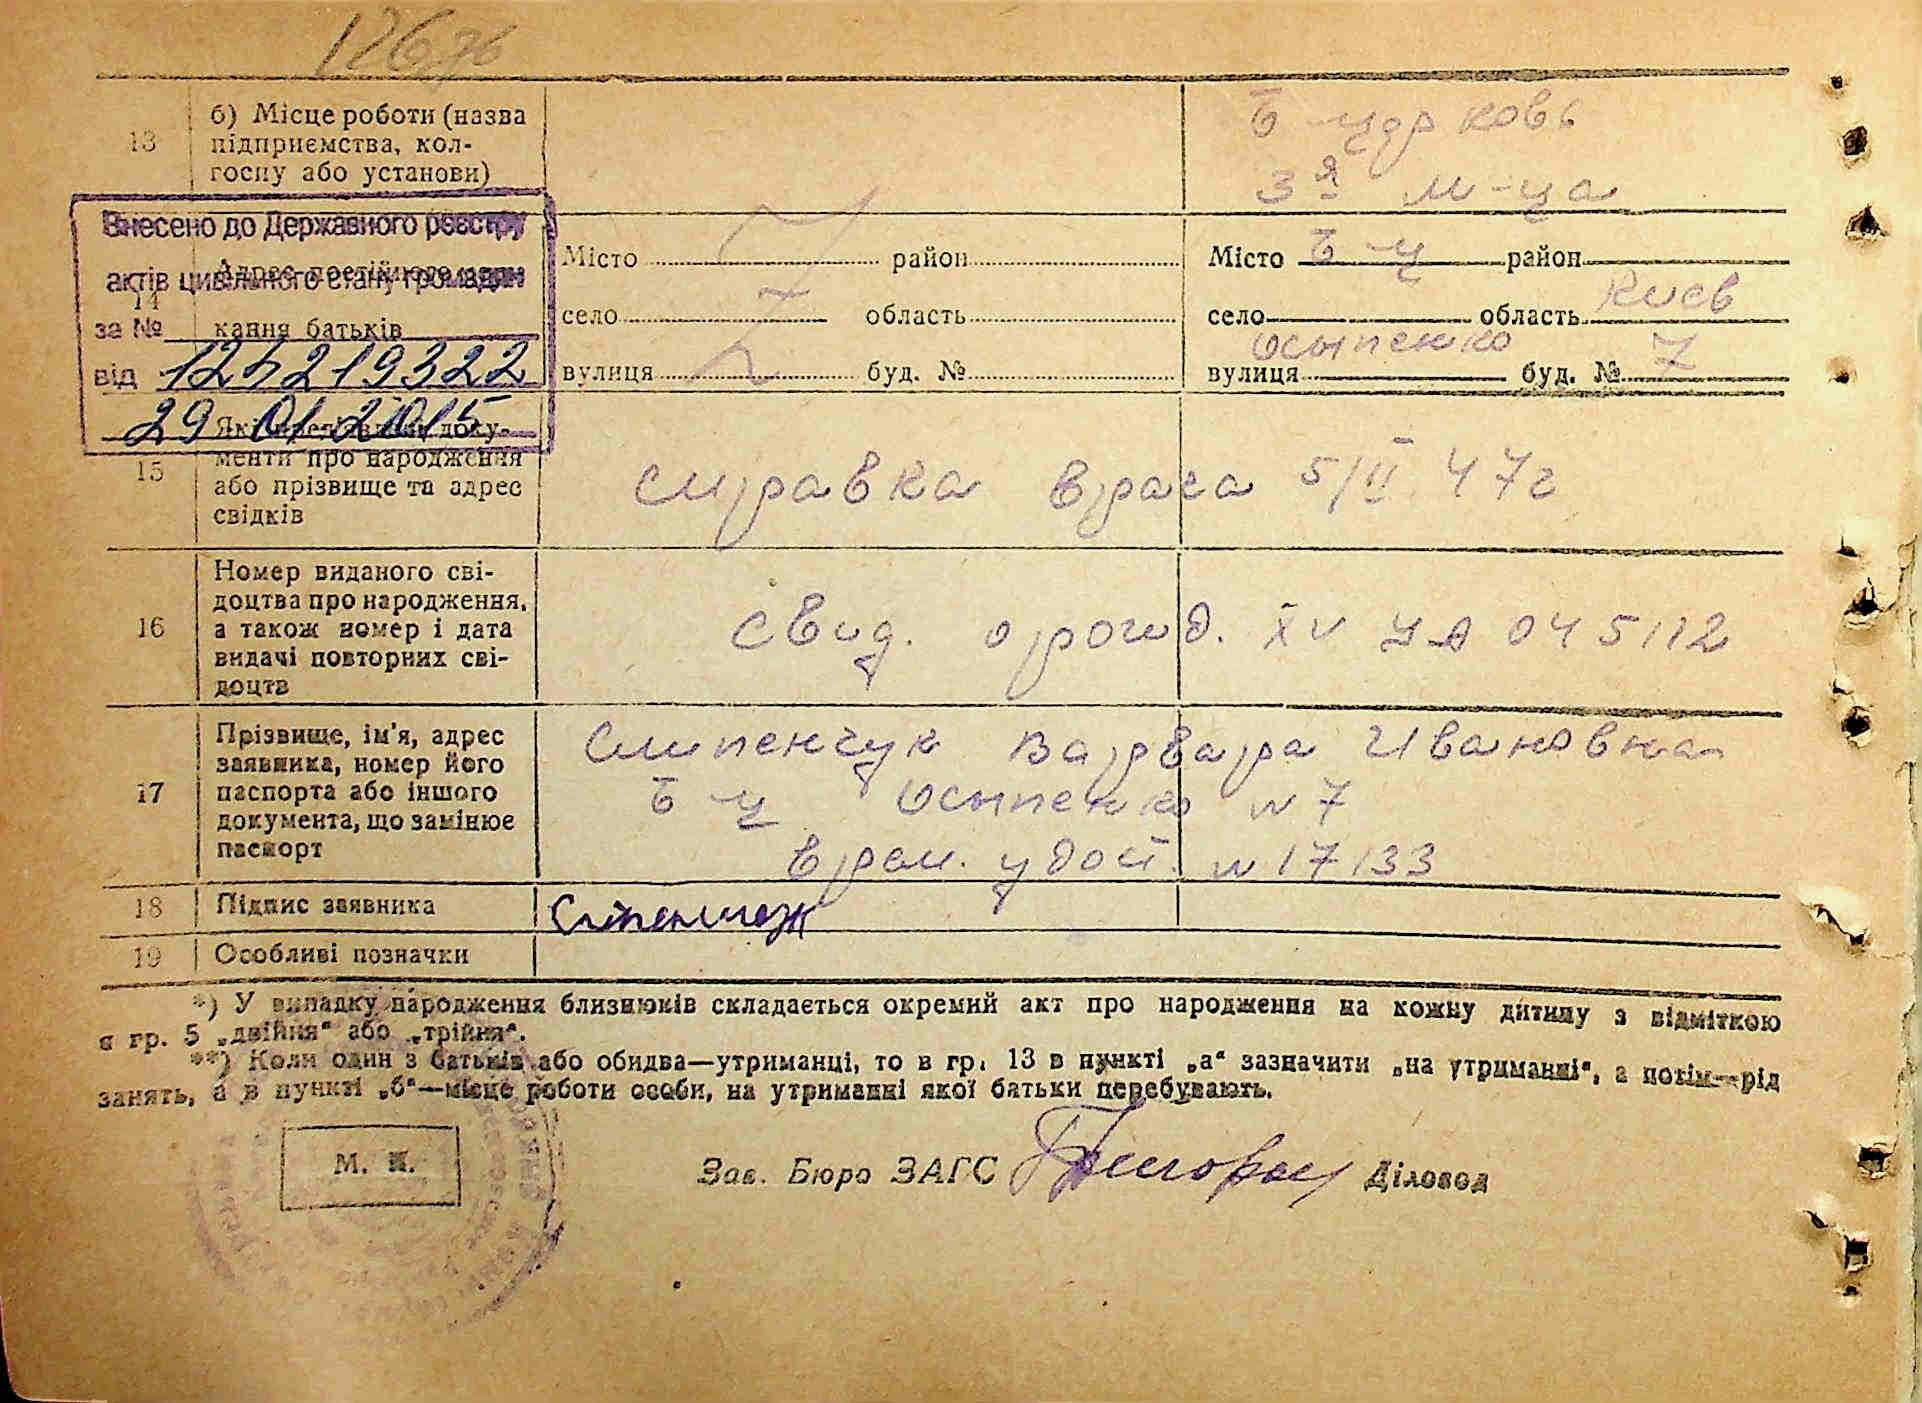 126
13 б) Місце роботи (назва підприємства, кол-
госпу або установи)
Б церковь
3я м-ца
Внесено до Державного реєстру
актів цивільного стану громадян
за №
від 12
219322
29 01 2015
14 Адрес постійного
кання батьків
Місто район
село область
вулиця буд. №
Місто Б Ц район
село область Киев
вулиця Осипенко буд. № 7
15 Які доку-
менти про народження
або прізвище та адрес
свідків
справка врача 5/II 47г
16 Номер виданого сві-
доцтва про народження,
а також номер і дата
видачі повторних сві-
доцтв
свид. о рожд. XV 045112
17 Прізвище, ім'я, адрес
заявника, номер його
паспорта або іншого
документа, що замінює
паспорт
Варвара Ивановна
Б Ц Осипенко N 7
врем. удост. N 17133
18 Підпис заявника
19 Особливі позначки
*) У випадку народження близнюків складається окремий акт про народження на кожну дитину з відміткою
в гр. 5 „двійня“ або „трійня“.
**) Коли один з батьків або обидва—утриманці, то в гр. 13 в пункті „а“ зазначити „на утриманні“, а потім—рід
занять, а в пункті „б“—місце роботи особи, на утриманні якої батьки перебувають.
М. П.
Зав. Бюро ЗАГС Діловод